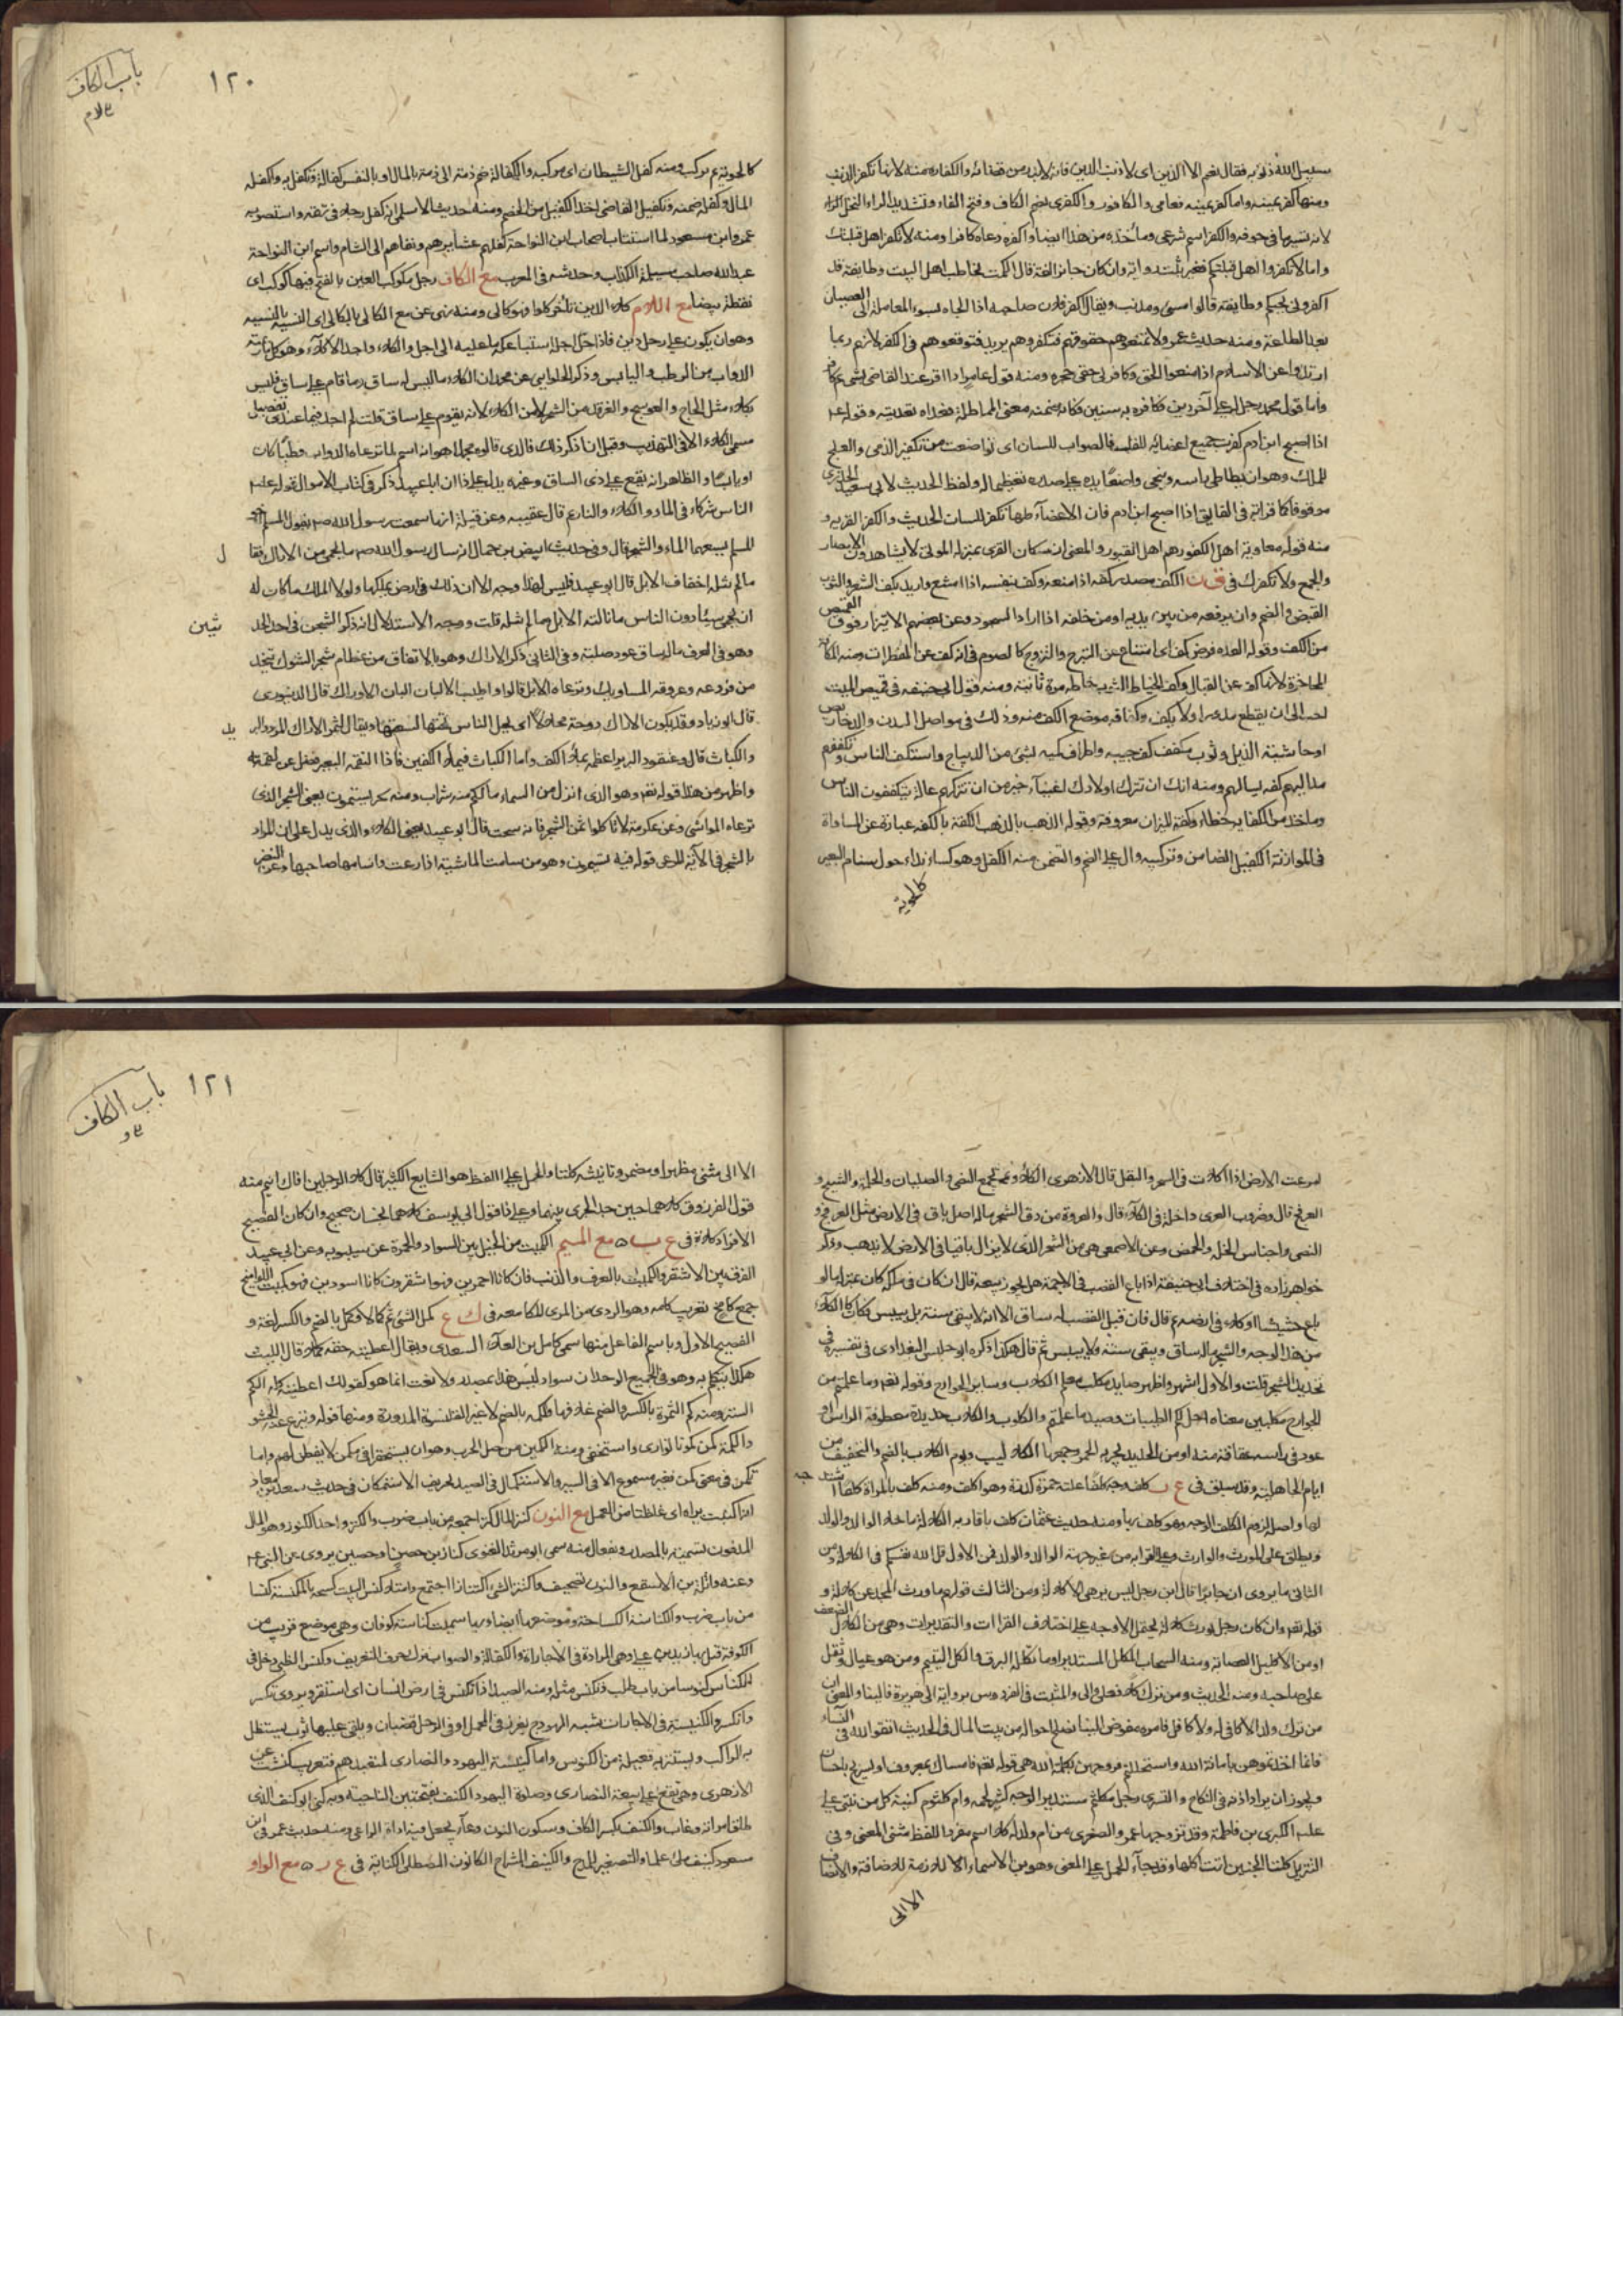 سبيل الله ذنوبه فقال نعم الا الدين اى لا ذنب الدين فانه لابد من قضائه والكفارة منه لانها تكفر الذنب
ومنها كفر عن يمينه واما كفر يمينه فعامى والكافور والكفرى بضم الكاف وفتح الفاء وتشديد الراء
لانه يسترها فى جوفه والكفر اسم شرعى ومأخذه من هذا ايضا واكفره دعاه كافرا ومنه لا تكفر اهل قبلتك
واما لا تكفروا اهل قبلتكم فغير ثبت رواية وان كان جائزا لغة قال الكميت يخاطب اهل البيت وطايفة قد
اكفرونى بحبكم وطايفة قالوا مسئ ومذنب ويقال اكفر فلان صاحبه اذا الجاه بسوء المعاملة الى العصيان
بعد الطاعة ومنه حديث عمر ولا تمنعوهم حقوقهم فتكفروهم يريد فتوقعوهم فى الكفر لانهم ربما
ارتدوا عن الاسلام اذا منعوا الحق وكافرنى حقى جحده ومنه قول عامر اذا اقر عند القاضى بشئ ثم كافر
واما قول محمد رجل له على آخر دين فكافره به سنين فكانه ضمنه معنى المماطلة فعداه تعديته وقوله عم
اذا اصبح ابن ادم كفرت جميع اعضائه للقلب فالصواب للسان اى تواضعت من تكفير الذمى والعلج
للملك وهو ان يطاطى راسه وينحنى واضعا يده على صدره تعظيما له ولفظ الحديث لابى سعيد الخدرى
موقوفا كما قراته فى الفايق اذا اصبح ابن ادم فان الاعضاء كلها تكفر للسان الحديث والكفر القرية و
منه قول معاوية اهل الكفور هم اهل القبور والمعنى ان سكان القرى بمنزلة الموتى لا يشاهدون الامصار
والجمع ولا نكفرك فى الكف مصدر كفه اذا منعه وكف بنفسه اذا امتنع واريد بكف الشعر والثوب
القبض والضم وان يرفعه من بين يديه او من خلفه اذا اراد السجود وعن بعضهم الايتزار فوق القميص
من الكف وقوله العدة فرض كف اى امتناع عن التبرج والتزوج كالصوم فى انه كف عن المفطرات ومنه المكافة
المحاجزة لانها كف عن القتال وكف الخياط الثوب خاطه مرة ثانية ومنه قول ابى حنيفه فى قميص الميت
ان يقطع مدورا ولا يكف وكفافه موضع الكف منه وذلك فى مواصل البدن والدخاريص
او حاشية الذيل وثوب مكفف كف جيبه واطراف كميه بشئ من الديباج واستكف الناس وتكففهم
مد اليهم كفه يسالهم ومنه انك ان تترك اولادك اغنياء خير من ان تتركهم عالة يتكففون الناس
كفه الميزان معروفة وقوله الذهب بالذهب الكفة بالكفه عبارة عن المساواة
فى الموازنة الكفيل الضامن وتركيبه دال على الضم والتضمن منه الكفل وهو كساء يدار حول سنام البعير
كالحوية
١٢٠
باب الكاف
ع لام
كالحوية ثم يركب ومنه كفل الشيطان اى مركبه والكفالة ضم ذمة الى ذمة بالمال او بالنفس كفالة وتكفل به واكفله
المال وكفله ضمنه وتكفيل القاضى اخذ الكفيل من الخصم ومنه حديث الاسلمى انه كفل رجلا فى تهمة واستصوبه
عمر وابن مسعود لما استتاب اصحاب ابن النواحة كفلهم عشايرهم ونفاهم الى الشام واسم ابن النواحة
عبد الله صاحب مسيلمة الكذاب وحديثه فى المعرب مع الكاف رجل مكوكب العين بالفتح فيها كوكب اى
نقطة بيضا مع اللام كلا الدين تاخر كلوا فهو كالئ ومنه نهى عن بيع الكالى بالكالى اى النسيه بالنسيه
وهو ان يكون على رجل دين فاذا حل اجله استباعك ما عليه الى اجل والكلاء واحد الاكلاء وهو كل ما رعته
الدواب من الرطب واليابس وذكر الحلوانى عن محمد ان الكلاء ما ليس له ساق وما قام على ساق فليس
بكلاء مثل الحاج والعوسج والغرقد من الشجر لا من الكلاء لانه يقوم على ساق قلت لم اجد فيما عندى تفصيل
مسمى الكلاء الا فى التهذيب وقبل ان اذكر ذلك فالذى قالوه مجملا هو انه اسم لما ترعاه الدواب رطبا كان
او يابسا والظاهر انه يقع على ذى الساق وغيره يدل على ذا ان ابا عبيد ذكر فى كتاب الاموال قوله عم
الناس شركاء فى الماء والكلاء والنار ثم قال عقيبه وعن قيلة انها سمعت رسول الله صم يقول المسلم اخو
المسلم يسعهما الماء والشجر قال وفى حديث ابيض بن حمال انه سال رسول الله صم ما يحمى من الاراك فقال
ما لم تنله اخفاف الابل قال ابو عبيد فليس لهذا وجه الا ان ذلك فى ارض يملكها ولولا الملك ما كان له
ان يحمى شيئا دون الناس ما نالته الابل وما لم تنله قلت ووجه الاستدلال انه ذكر الشجر فى احد الحديثين
وهو فى العرف ماله ساق عود صلبة وفى الثانى ذكر الاراك وهو بالاتفاق من عظام شجر الشوك يتخذ
من فروعه وعروقه المساويك وترعاه الابل قالوا واطيب الالبان البان الاوارك قال الدينورى
قال ابو زياد وقد يكون الاراك دوحة محلالا اى يحل الناس تحتها لسعتها ويقال لثمر الاراك المرد والبرير
والكباث قال وعنقود البرير اعظمه يملأ الكف واما الكباث فيملأ الكفين فاذا التقمه البعير فضل عن لقمته
واظهر من هذا قوله تعم وهو الذى انزل من السماء ماء لكم منه شراب ومنه شجر فيه تسيمون يعنى الشجر الذى
ترعاه المواشى وعن عكرمة لا تاكلوا ثمن الشجر فانه سحت قال ابو عبيد يعنى الكلاء والذى يدل على ان المراد
بالشجر فى الآية المرعى قوله فيه تسيمون وهو من سامت الماشية اذا رعت واسامها صاحبها وعن النضر
امرعت الارض اذا اكلأت فى الشجر والبقل قال الازهرى الكلاء تجمع النصى والصليان والحلمة والشيح و
العرفج قال وضروب العرى داخلة فى الكلاء قال والعروة من دق الشجر ماله اصل باق فى الارض مثل العرفج و
النصى واجناس الخلة والحمض وعن الاصمعى هى من الشجر الذى لا يزال باقيا فى الارض لا يذهب وذكر
خواهر زاده فى اختلاف ابى حنيفة اذا باع القصب فى الاجمة هل يجوز بيعه قال ان كان فى ملكه كان بمنزلة ما لو
باع حشيشا او كلاء فى ارضه ثم قال فان قيل القصب له ساق الا انه لا يبقى سنة بل ييبس فكان كالكلاء
من هذا الوجه والشجر ماله ساق ويبقى سنة ولا ييبس ثم قال هكذا ذكره ابو حسن البغدادى فى تفسيره فى
تحديد الشجر قلت والاول اشهر واظهر صايد مكلب معلم الكلاب وساير الجوارح وقوله تعم وما علمتم من
الجوارح مكلبين معناه احل لكم الطيبات وصيد ما علمتم والكلوب والكلاب حديدة معطوفة الراس او
عود فى راسه عقافة منه او من الحديد يجر به الجمر وجمعها الكلاليب ويوم الكلاب بالضم والتخفيف من
ايام الجاهلية وقد سبق فى ع ر كلف وجهه كلفا علته حمرة كدرة وهو اكلف ومنه كلف بالمراة كلفا اشتد حبه
لها واصله لزوم الكلف الوجه وهو كلف بها ومنه حديث عثمان كلف باقاربه الكلالة ما خلا الوالد والولد
ويطلق على المورث والوارث وعلى القرابة من غير جهة الوالد والولد فمن الاول قل الله يفتيكم فى الكلالة ومن
الثانى ما يروى ان جابرا قال انى رجل ليس يرثنى الا كلالة ومن الثالث قولهم ما ورث المجد عن كلالة و
قوله تعم وان كان رجل يورث كلالة يحتمل الاوجه على اختلاف القراات والتقديرات وهى من الكلال الضعف
او من الاكليل العصابة ومنه السحاب المكلل المستدير او ما تكلله البرق والكل اليتيم ومن هو عيال وثقل
على صاحبه ومنه الحديث ومن ترك كلا فعلى والى والمثبت فى الفردوس برواية ابى هريرة فالينا والمعنى ان
من ترك ولدا لا كافى له ولا كافل فامره مفوض الينا نصلح احواله من بيت المال فى الحديث اتقوا الله فى النساء
فانما اخذتموهن بامانة الله واستحللتم فروجهن بكلمة الله هى قوله تعم فامساك بمعروف او تسريح باحسان
ويجوز ان يراد اذنه فى النكاح والتسرى رجل مكلثم مستدير الوجه كثير لحمه وام كلثوم كنية كل من بنتى على
عليه الكبرى من فاطمة وقد تزوجها عمر والصغرى من ام ولد له كلا اسم مفرد اللفظ مثنى المعنى وفى
التنزيل كلتا الجنتين آتت اكلها وقد جاء الحمل على المعنى وهو من الاسماء اللازمة للاضافة ولا يضاف
الا الى
١٢١
باب الكاف
ع و
الا الى مثنى مظهر او مضمر وتانيثه كلتا والحمل على اللفظ هو الشايع الكثير قال كلا الرجلين افاك اثيم منه
قول الفرزدق كلاهما حين جد الجرى بينهما وعلى ذا قول ابى يوسف كلاهما نجسان صحيح وان كان الفصيح
الافراد كلاة فى ع ب مع الميم الكميت من الخيل بين السواد والحمرة عن سيبويه وعن ابى عبيد
الفرق بين الاشقر والكميت بالعرف والذنب فان كانا احمرين فهو اشقر وان كانا اسودين فهو كميت الكوامخ
جمع كامخ تعريب كامه وهو الردى من المرى المكامعه فى ك ع كمل الشئ تم كمالا وكمل بالضم والكسر لغة و
الفصيح الاول وباسم الفاعل منها سمى كامل بن العلاء السعدى ويقال اعطيته حقه كملا قال الليث
هكذا يتكلم به وهو فى الجميع والوحدان سواء ليس هذا بمصدر ولا نعت انما هو كقولك اعطيته كله الكم
الستر ومنه كم الثمرة بالكسر والضم غلافها والكمه بالضم لا غير القلنسوة المدورة ومنها قوله وتنزع عنه الحشو
والكمة كمن كمونا توارى واستخفى ومنه الكمين من حيل الحرب وهو ان يستخفوا فى مكمن لا يفطن لهم واما
تكمن فى معنى كمن فغير مسموع الا فى السير والاستكمال فى الصيد تحريف الاستمكان فى حديث سعد بن معاذ
انه اكنبت يداه اى غلظتا من العمل مع النون كنز المال كنزا جمعه من باب ضرب والكنز واحد الكنوز وهو المال
المدفون تسمية بالمصدر وبفعال منه سمى ابو مرثد الغنوى كناز بن حصين او حصين يروى عن النبى عم
وعنه واثلة بن الاسقع والنون تصحيف واكتنز الشئ اكتنازا اجتمع وامتلأ وكنس البيت كسحه بالمكنسة كنسا
من باب ضرب والكناسة الكساحة وموضعها ايضا وبها سميت كناسة كوفان وهى موضع قريب من
الكوفة قتل بها زيد بن على وهى المرادة فى الاجارات والكفالة والصواب ترك حرف التعريف وكنس الظبى دخل فى
الكناس كنوسا من باب طلب وتكنس مثله ومنه الصيد اذا تكنس فى ارض انسان اى استقر ويروى تكسر
وانكسر والكنيسة فى الاجارات شبه الهودج يغرز فى المحمل او فى الرحل قضبان ويلقى عليها ثوب يستظل
به الراكب ويستتر به فعيلة من الكنوس واما كنيسة اليهود والنصارى لمتعبدهم فتعريب كنشت عن
الازهرى وهى تقع على بيعة النصارى وصلوة اليهود الكنف بفتحتين الناحية وبه كنى ابو كنف الذى
طلق امراته وغاب والكنف بكسر الكاف وسكون النون وعاء يجعل فيه اداة الراعى ومنه حديث عمر فى ابن
مسعود كنيف ملئ علما والتصغير للمدح والكنيف المستراح الكانون المصطلى الكناية فى ع ر مع الواو